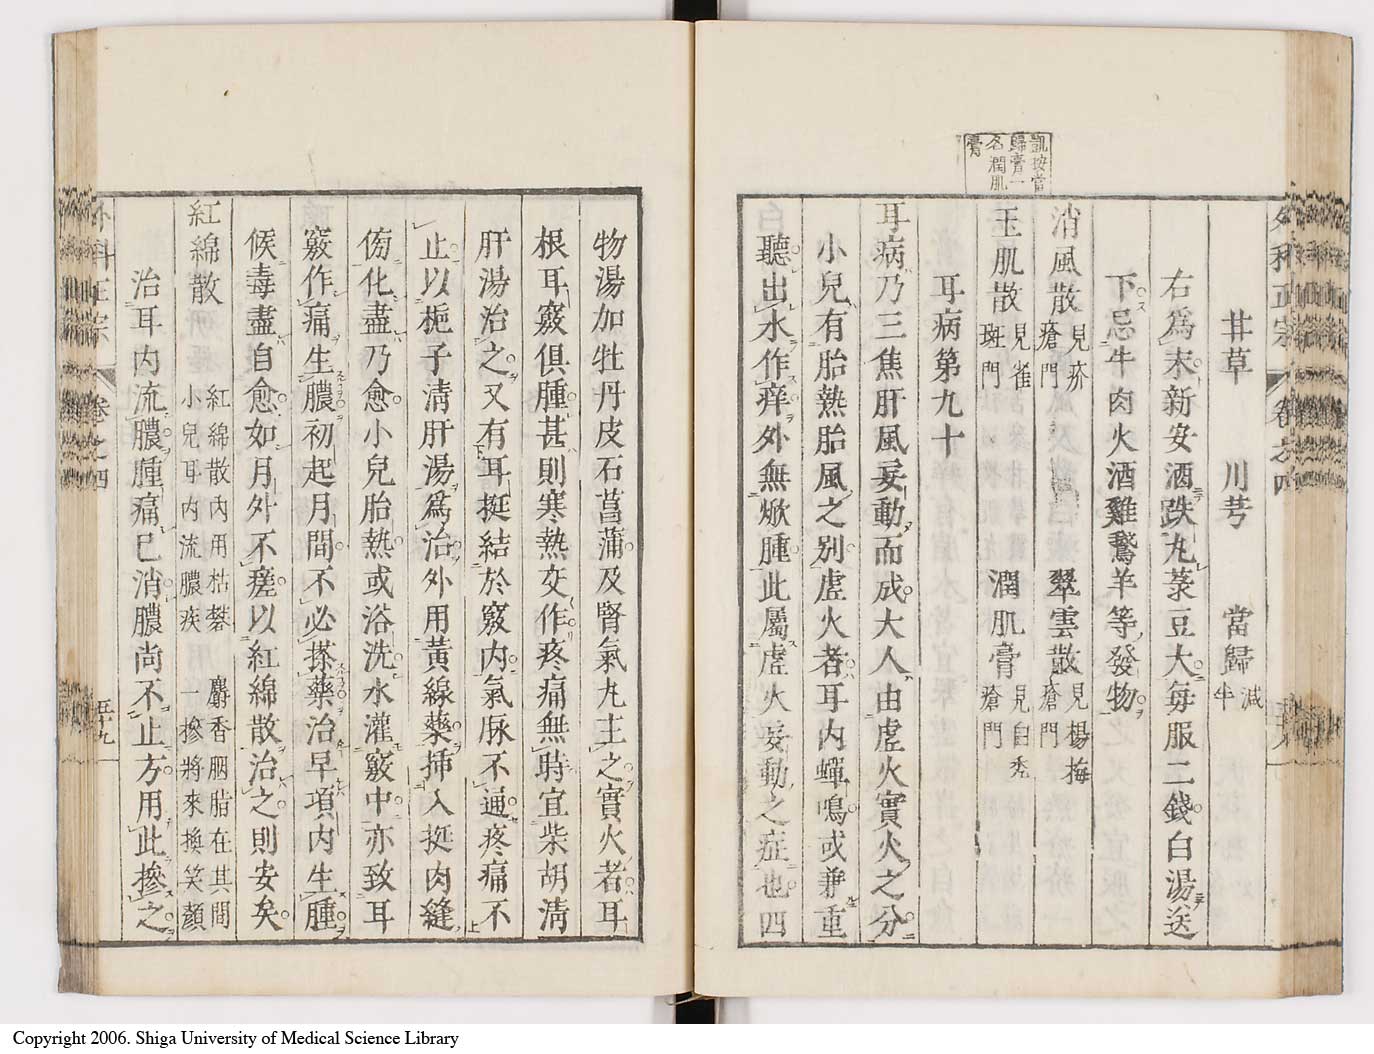 外科正宗 卷之四
甘草 川芎 當歸減半
右爲末新安酒跌丸菉豆大毎服二錢白湯送
下忌牛肉火酒雞鵝羊等發物
消風散見疥瘡門 翠雲散見楊梅瘡門
玉肌散見雀斑門 潤肌膏見白禿瘡門
凱按當
歸膏一
名潤肌
膏
耳病第九十
耳病乃三焦肝風妄動而成大人由虛火實火之分
小兒有胎熱胎風之別虛火者耳內蟬鳴或兼重
聽出水作痒外無焮腫此屬虛火妄動之症也四
物湯加牡丹皮石菖蒲及腎氣丸主之實火者耳
根耳竅俱腫甚則寒熱交作疼痛無時宜柴胡淸
肝湯治之又有耳挺結於竅內氣脉不通疼痛不
止以梔子淸肝湯爲治外用黃線藥揷入挺肉縫
傍化盡乃愈小兒胎熱或浴洗水灌竅中亦致耳
竅作痛生膿初起月間不必搽藥治早項內生腫
候毒盡自愈如月外不瘥以紅綿散治之則安矣
紅綿散 紅綿散內用枯礬 麝香胭脂在其間
小兒耳內流膿疾 一摻將來換笑顏
治耳內流膿腫痛已消膿尚不止方用此摻之
外科正宗 卷之四 五十九
Copyright 2006. Shiga University of Medical Science Library